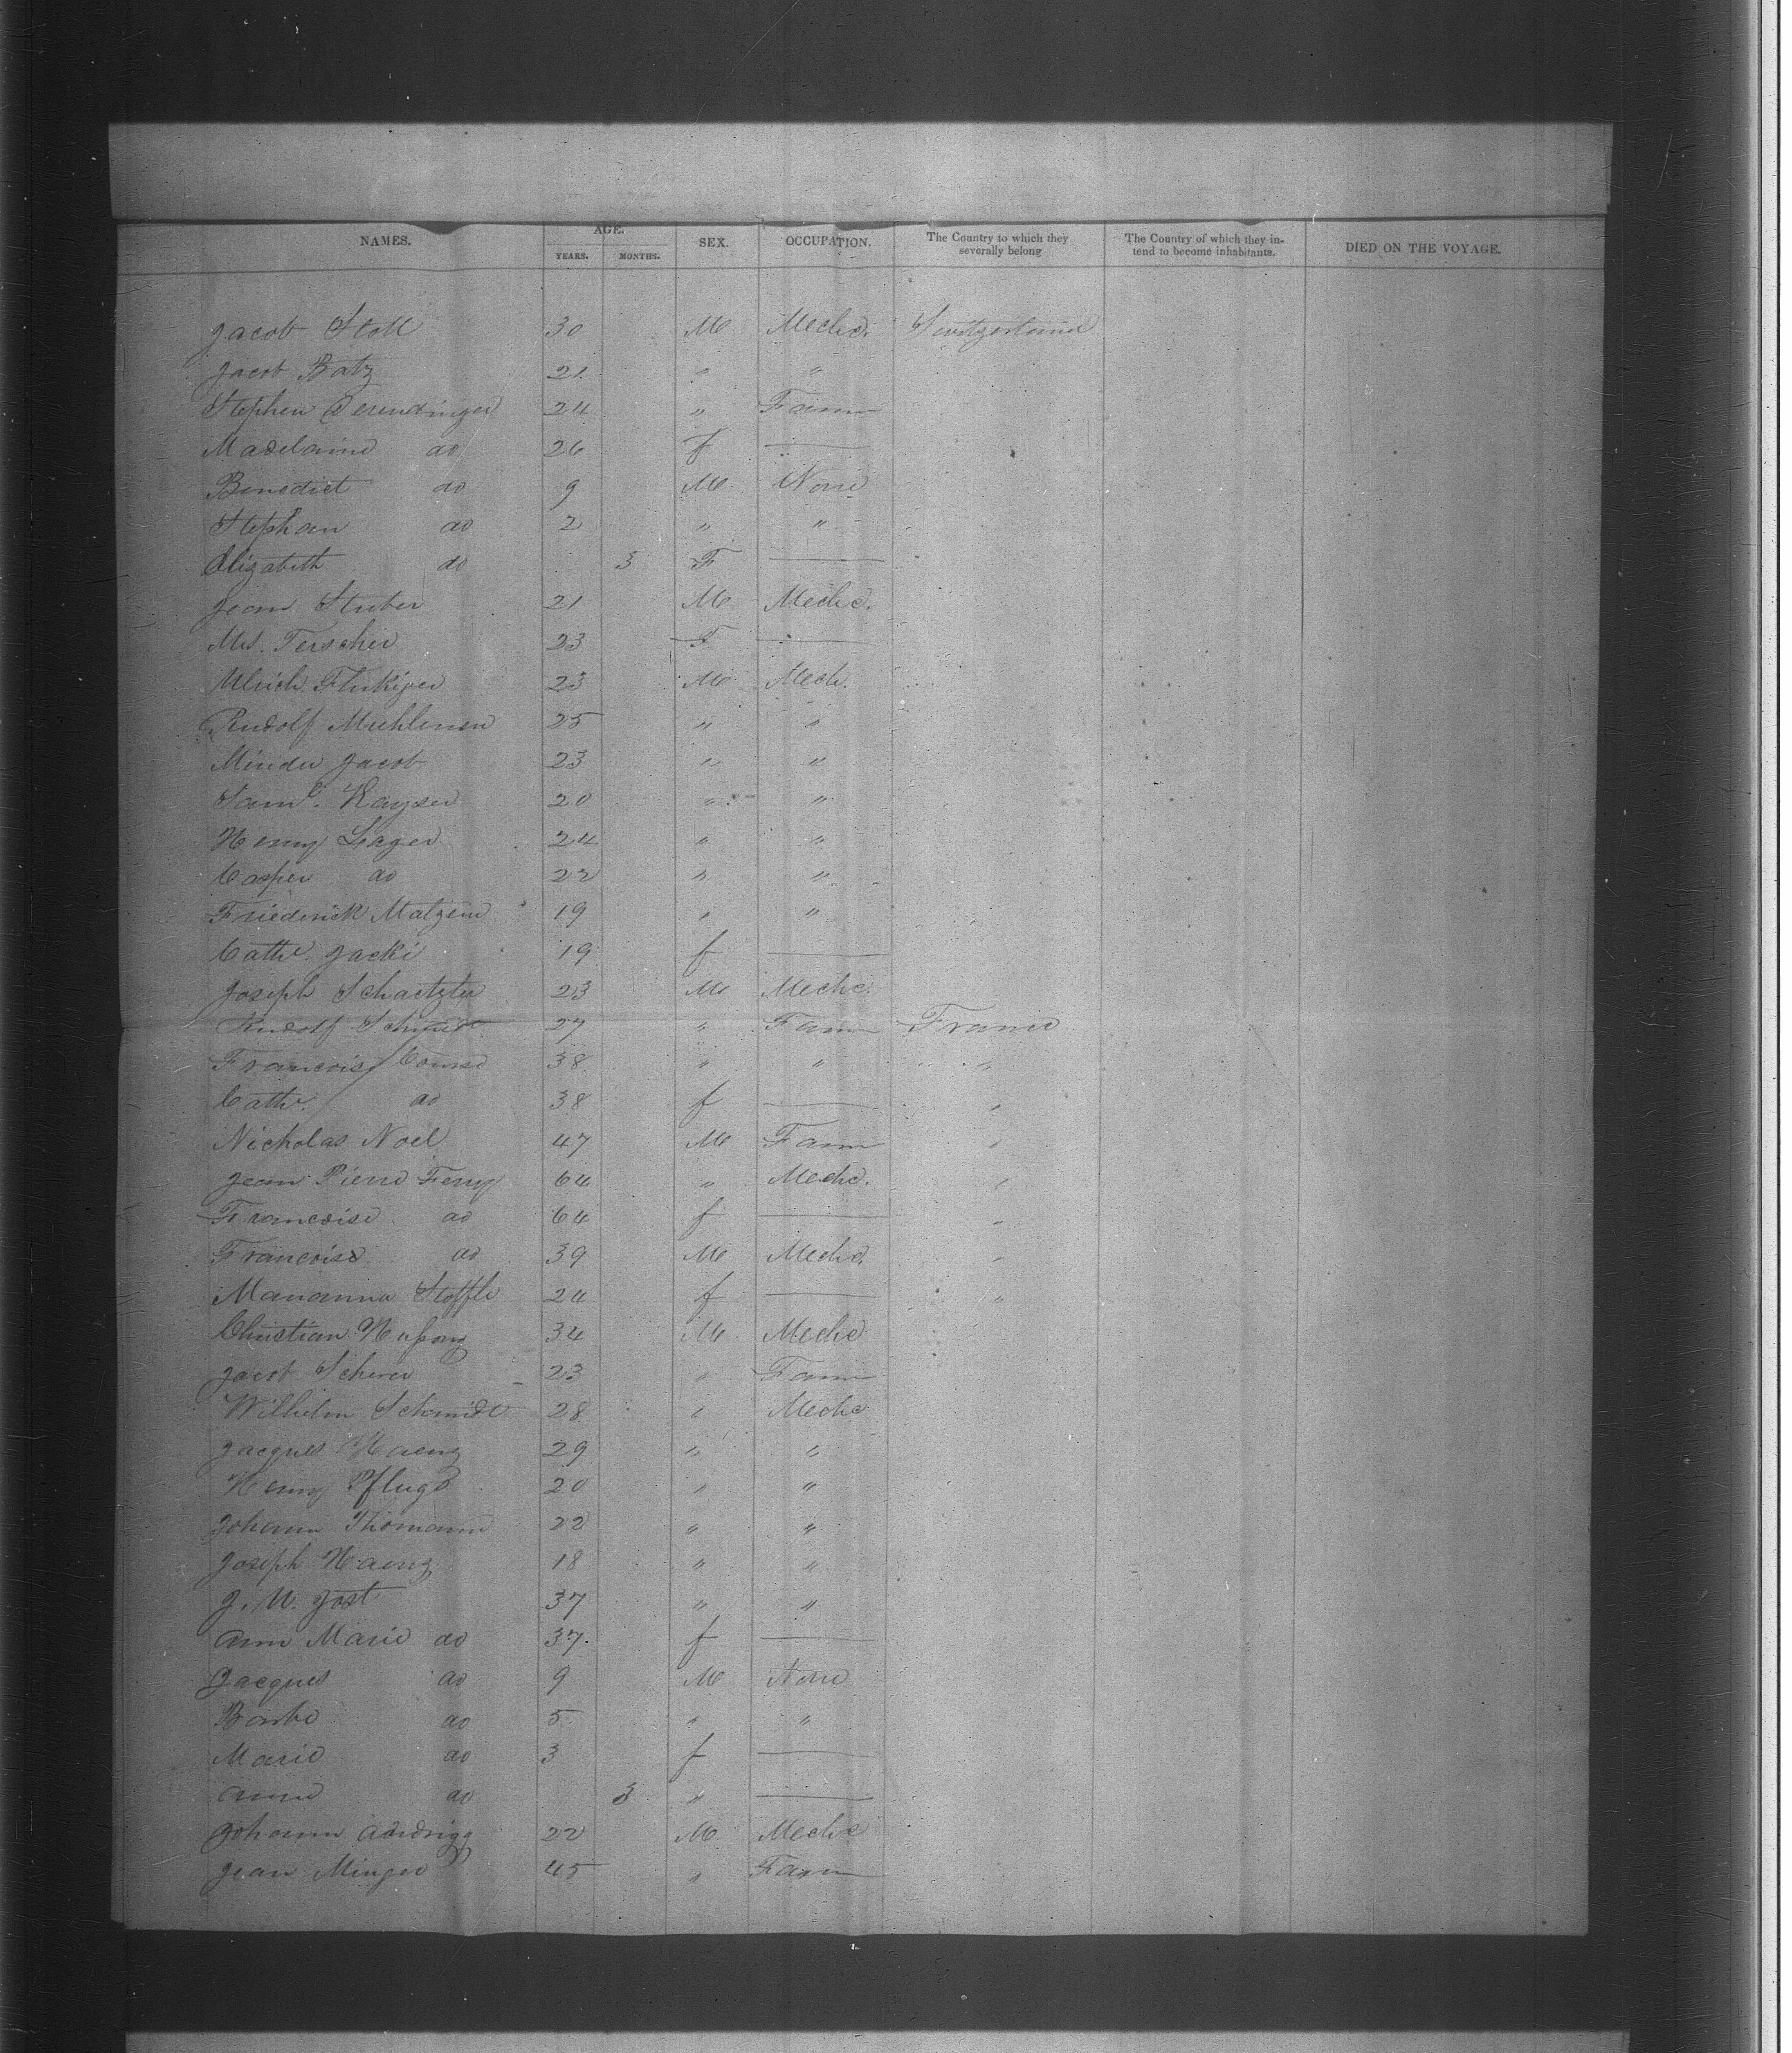 NAMES. AGE. YEARS. MONTHS. SEX. OCCUPATION. The Country to which they severally belong The Country of which they intend to become inhabitants. DIED ON THE VOYAGE.
Jacob Stoll 30 M Mechc. Switzerland
Jacob Batz 21 " "
Stephen Derendinger 24 " Farm
Madelaine do 26 f
Benedict do 9 M None
Stephan do 2 " "
Elizabeth do 3 F
Jean Stuber 21 M Mechc.
Mrs. Terscher 23 F
Ulrich Flukiger 23 M Mech.
Rudolf Muhlenen 25 " "
Minder Jacob 23 " "
Saml. Kayser 20 " "
Henry Lager 24 " "
Casper do 22 " "
Friederick Matzen 19 " "
Cathe. Jacki 19 f
Joseph Schaetzle 23 M Mechc.
Rudolf Schmidt 27 " Farm France
Francois 38 " " "
Cathe. do 38 f "
Nicholas Noel 47 M Farm "
Jean Pierre Ferry 64 " Mechc. "
Francoise do 64 f "
Francoise do 39 M Mechc. "
Marianna Stoffle 24 f "
Christian 34 M Mechc
Jacob Scherer 23 " Farm
Wilhelm Schmidt 28 " Mechc
Jacques Haenz 29 " "
Henry Pflugo 20 " "
Johann Thomann 22 " "
Joseph Haenz 18 " "
J. U. Jost 37 " "
Ann Marie do 37 f
Jacques do 9 M None
Barbe do 5 " "
Marie do 3 f
Anna do 3 "
Johann 22 M Mechc
Jean Minger 45 " Farm